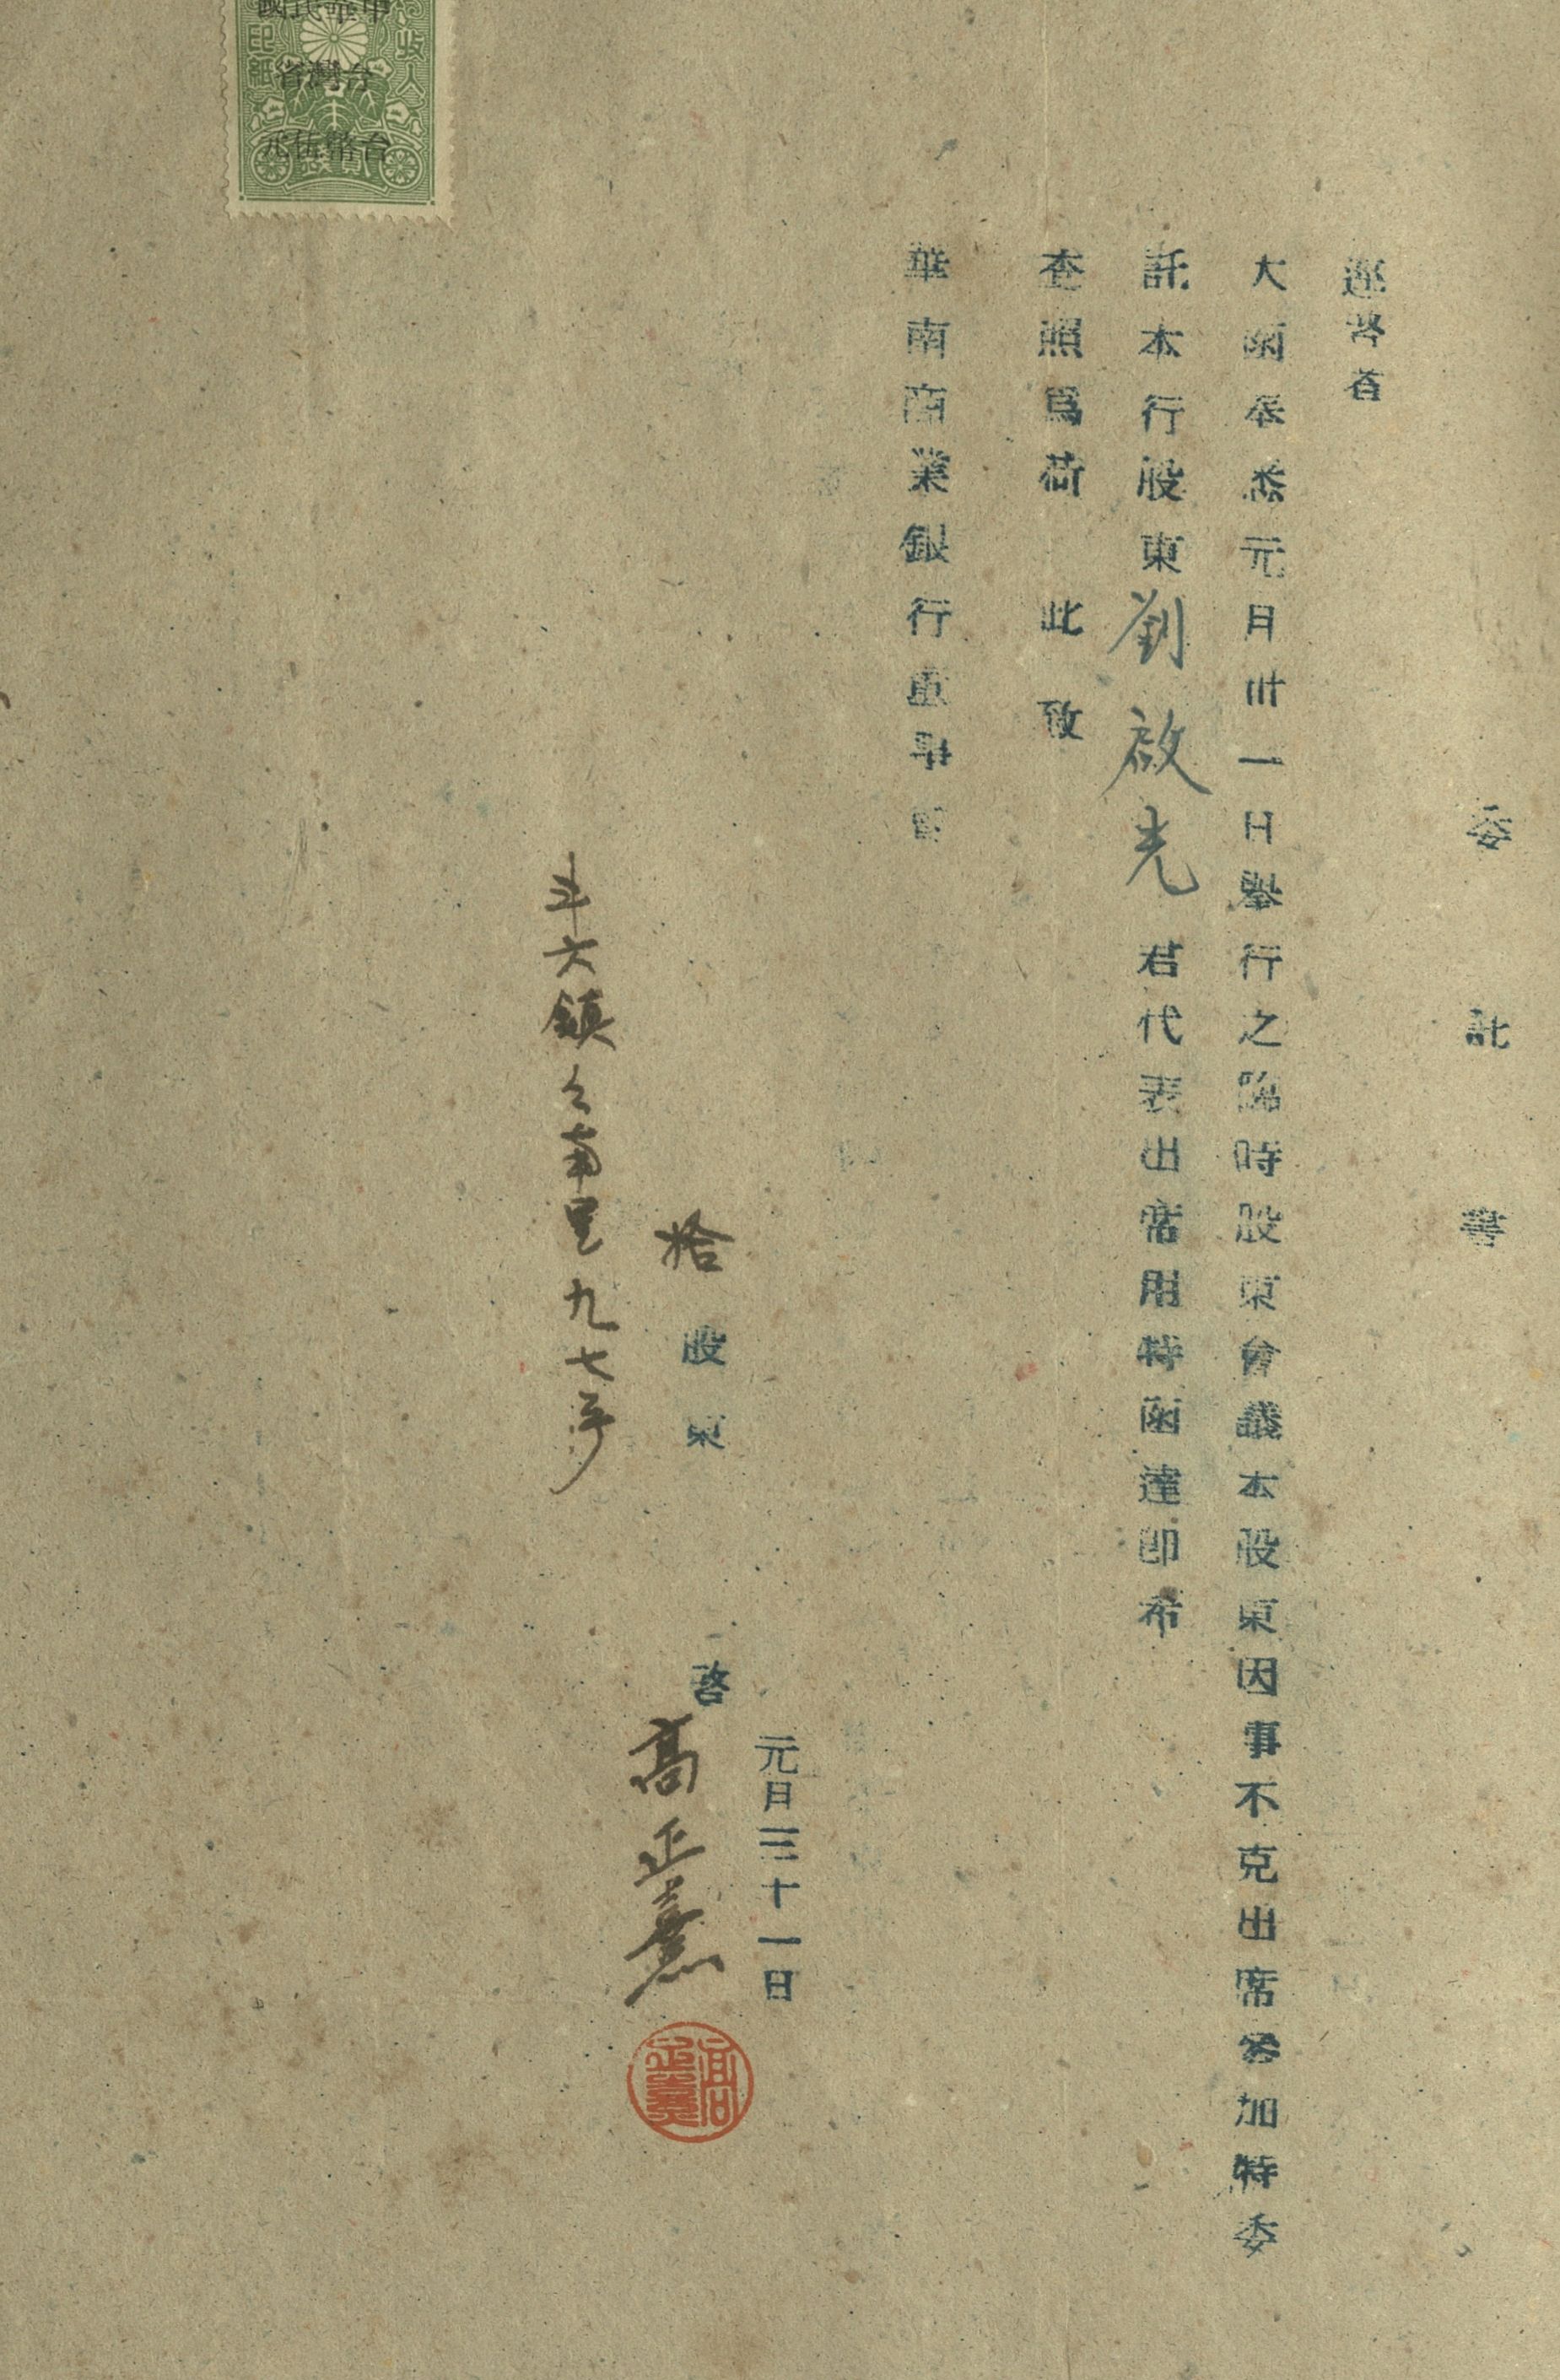 委託書
逕啓者
大函奉悉元月卅一日舉行之臨時股東會議本股東因事不克出席參加特委
託本行股東劉啟光君代表出席用特函達即希
查照爲荷 此致
華南商業銀行董事會
元月三十一日
拾股東 啓
高正熹
斗六鎮々南里九七
高正熹
中華民國
台灣省
台幣伍元
收入印紙
貳錢